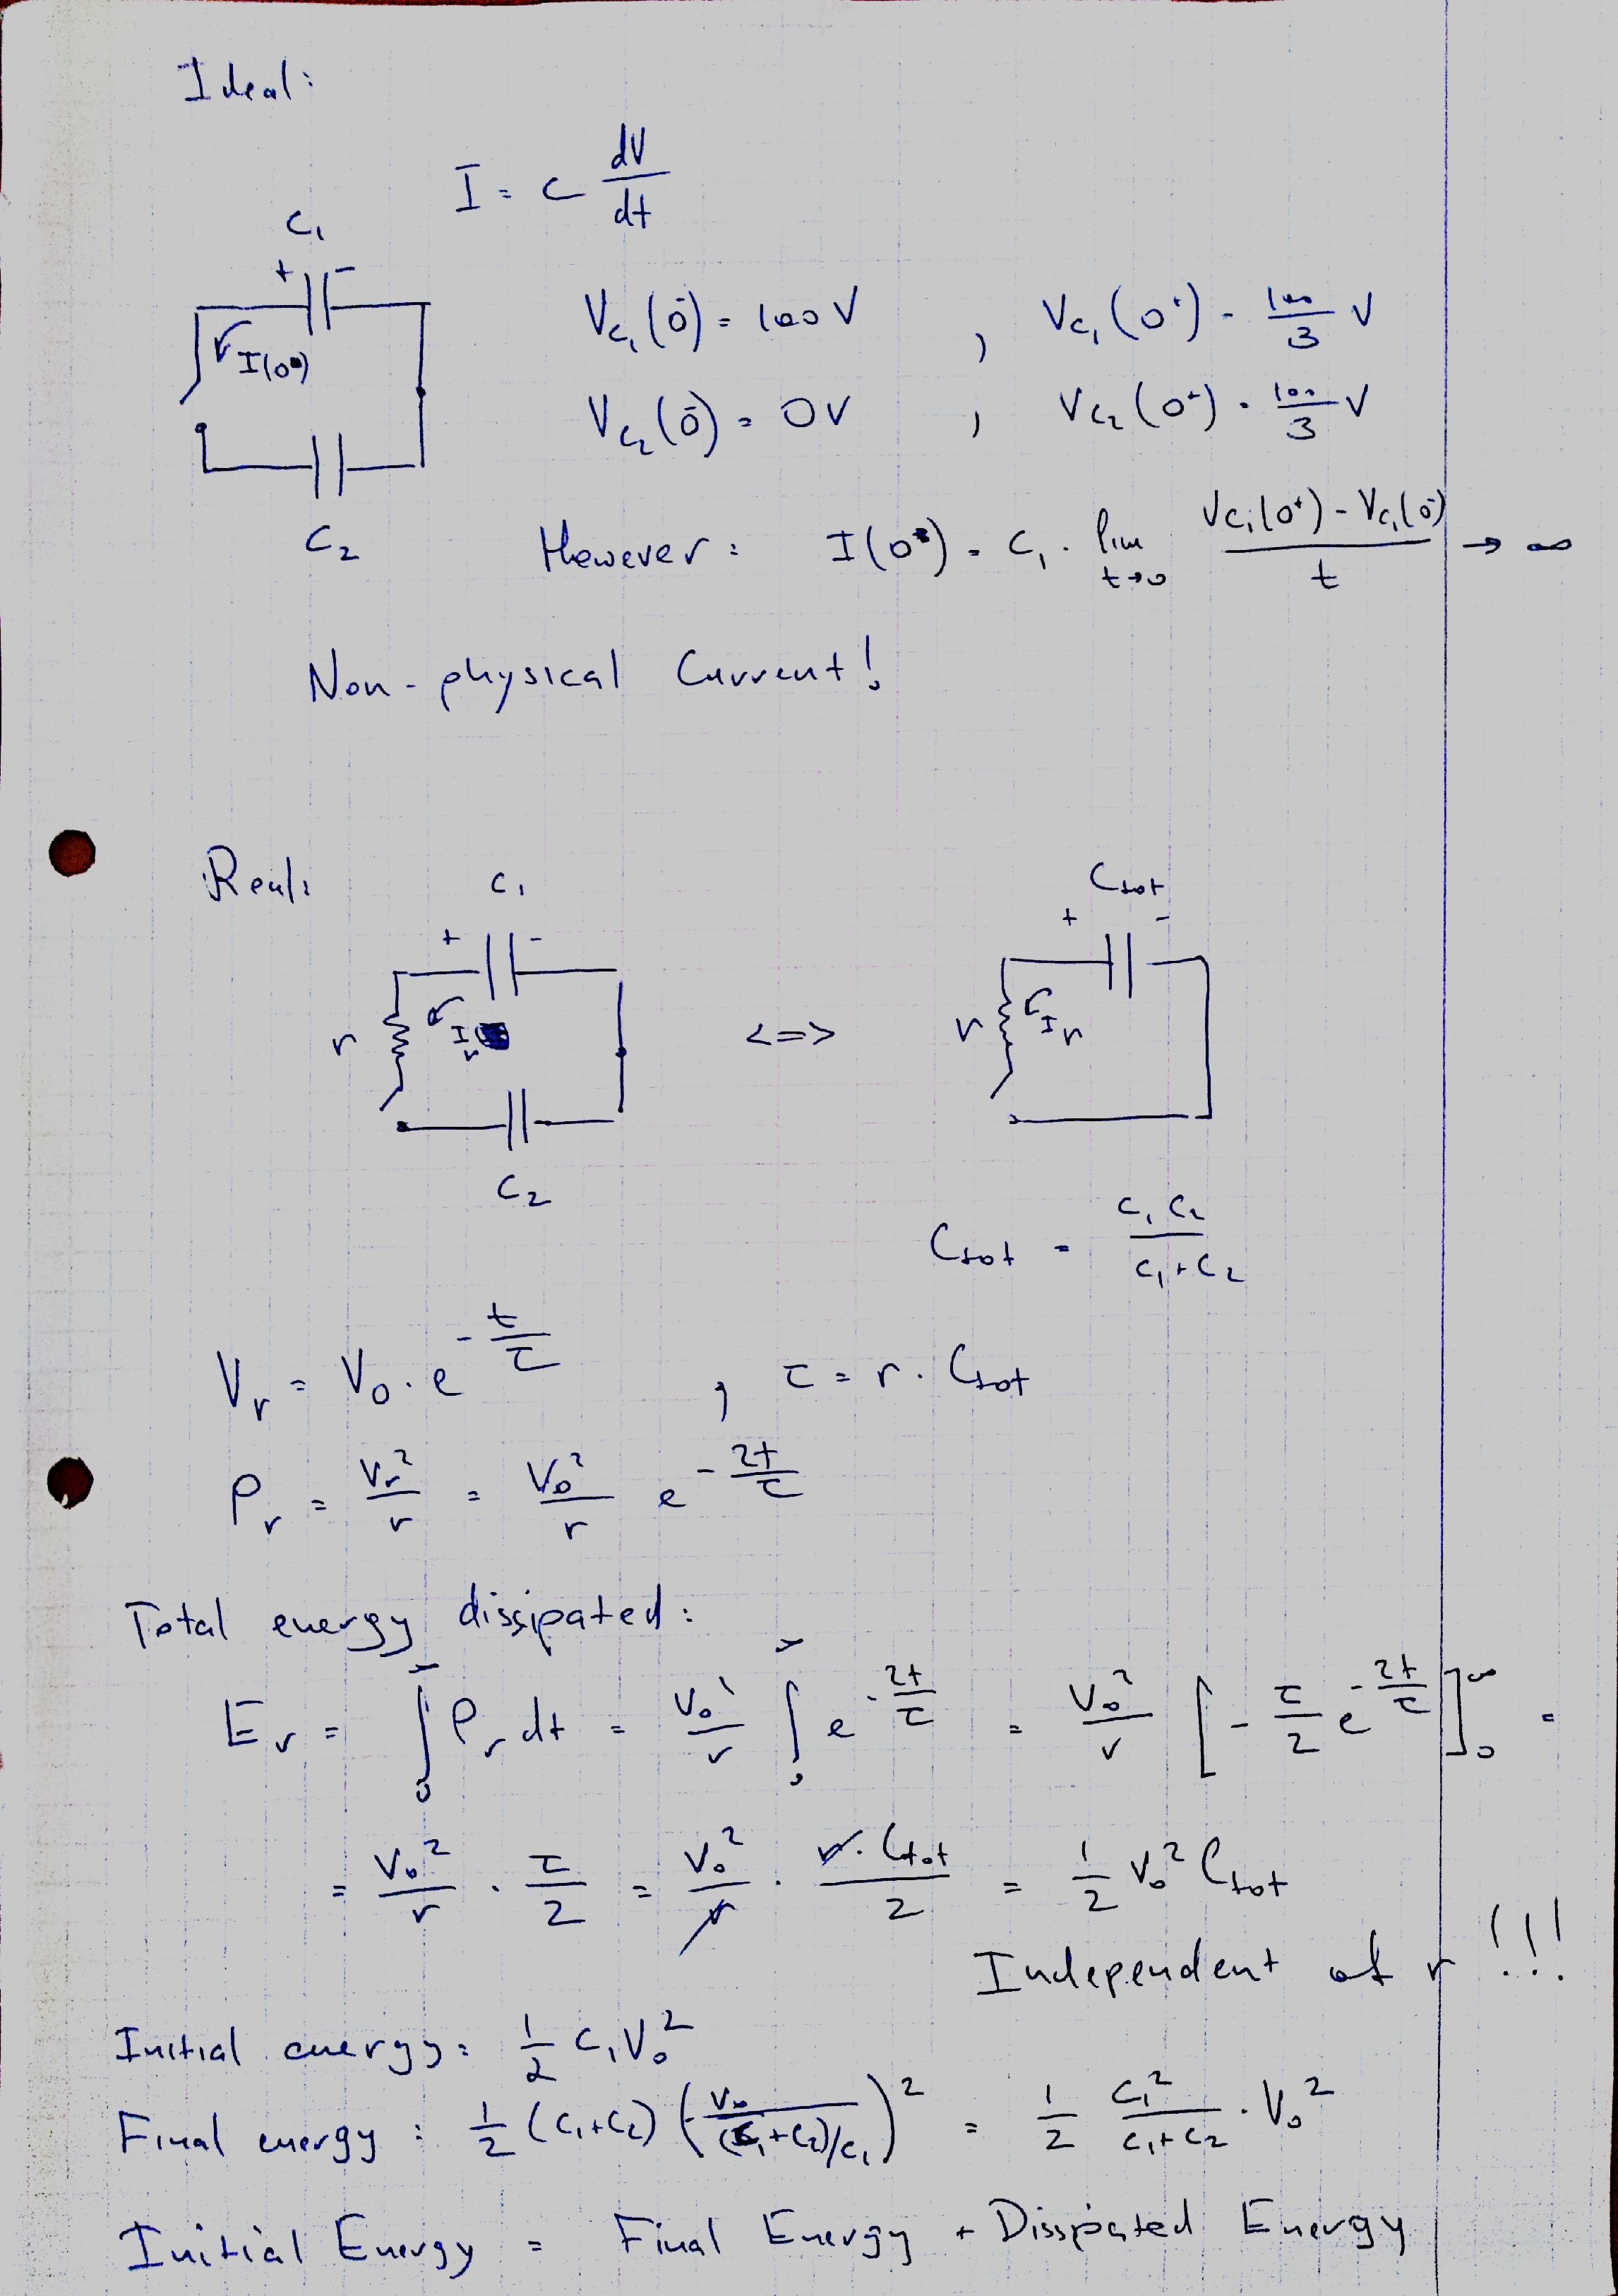 Ideal:
I = C dV/dt
C₁
+ -
I(0)
C₂
V_C₁(0⁻) = 100 V , V_C₁(0⁺) = 100/3 V
V_C₂(0⁻) = 0V , V_C₂(0⁺) = 100/3 V
However: I(0) = C₁ · lim t→0 (V_C₁(0⁺) - V_C₁(0⁻))/t → ∞
Non-physical Current!
Real:
C₁
+ -
r
I_r
C₂
<=>
C_tot
+ -
r
I_r
C_tot = C₁C₂/(C₁+C₂)
V_r = V₀ · e^(-t/τ) , τ = r · C_tot
P_r = V_r²/r = V₀²/r e^(-2t/τ)
Total energy dissipated:
E_r = ∫₀^∞ P_r dt = V₀²/r ∫₀^∞ e^(-2t/τ) = V₀²/r [-τ/2 e^(-2t/τ)]₀^∞ =
= V₀²/r · τ/2 = V₀²/r · r·C_tot/2 = 1/2 V₀² C_tot
Independent of r !!!
Initial energy: 1/2 C₁V₀²
Final energy: 1/2 (C₁+C₂) (V₀/((C₁+C₂)/C₁))² = 1/2 C₁²/(C₁+C₂) · V₀²
Initial Energy = Final Energy + Dissipated Energy